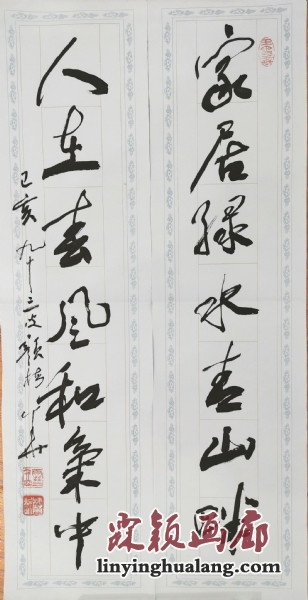 家居绿水青山畔
人在春风和气中
己亥九十三
霖颖画廊
linyinghualang.com